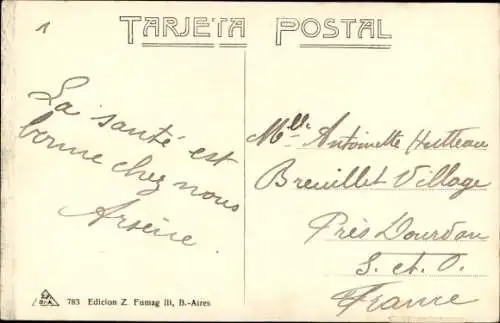 1
TARJETA POSTAL
La santé est
bonne chez nous
Arsène
Mlle Antoinette Hutteau
Breuillet Village
Près Dourdan
S. et O.
France
783 Edicion Z. Fumagalli, B.-Aires